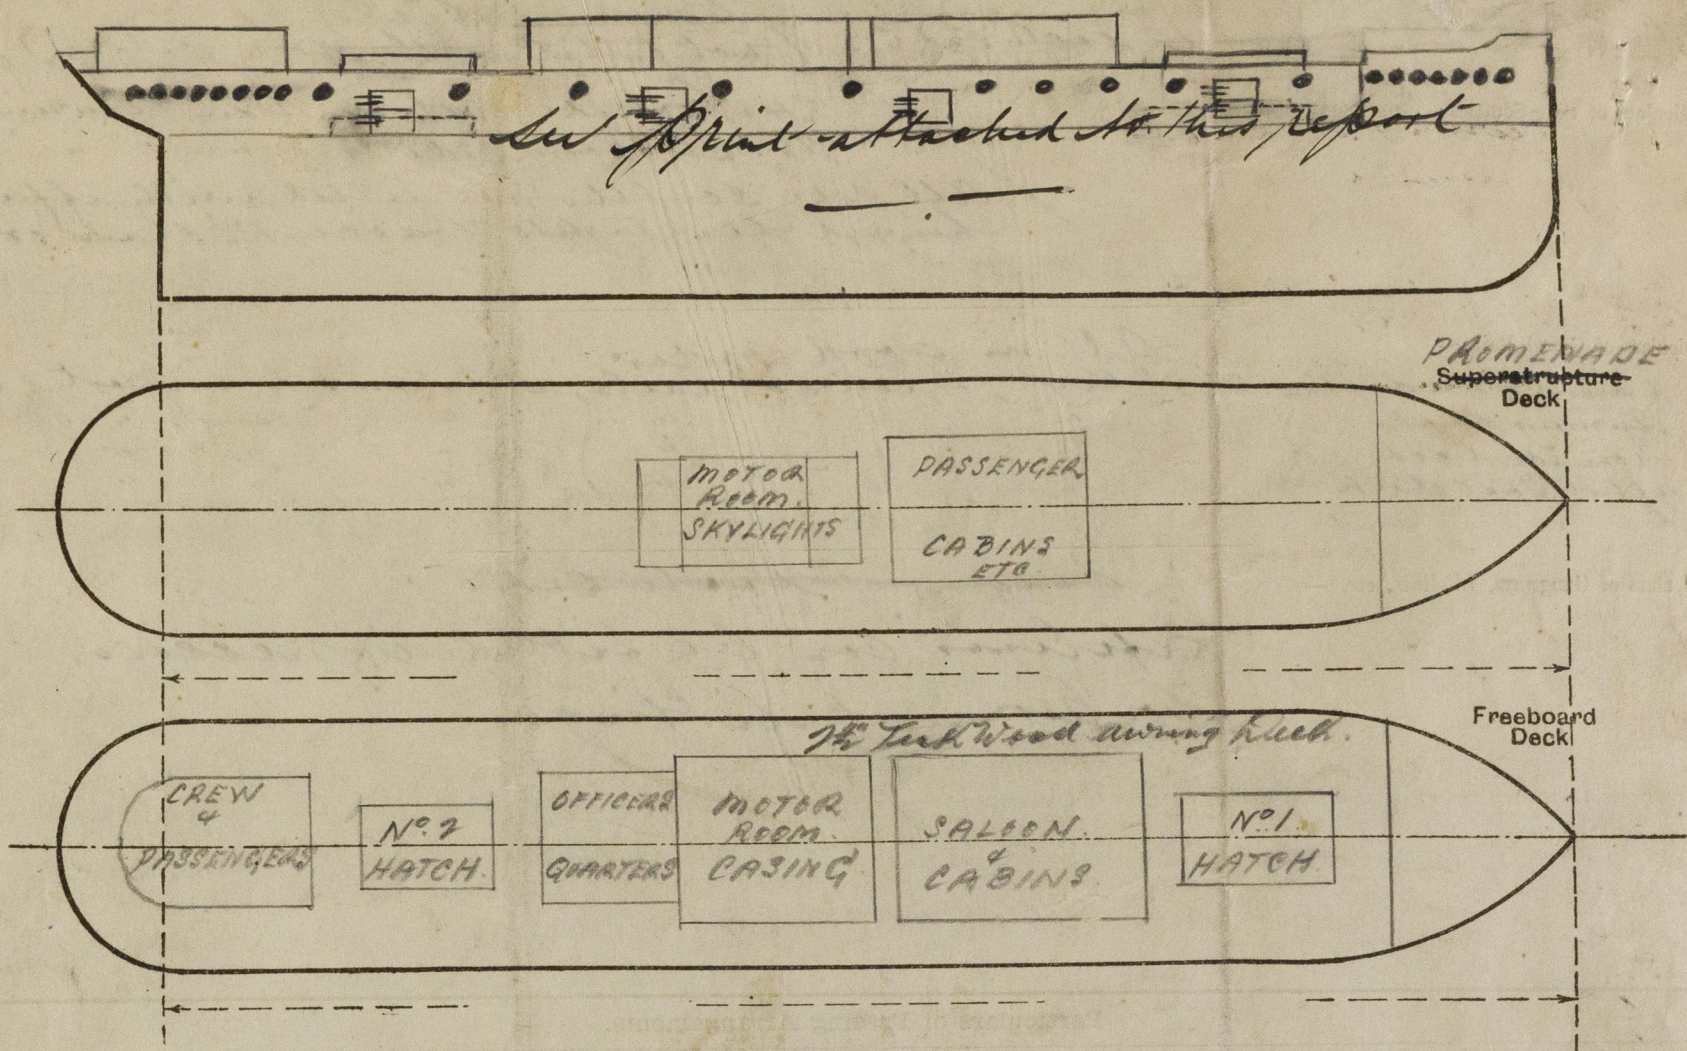 see print attached to this report
PROMENADE
Superstructure
Deck
MOTOR
ROOM.
SKYLIGHTS
PASSENGER
CABINS
ETC
Freeboard
Deck
Teak Wood awning Deck.
CREW
&
PASSENGERS
No. 2
HATCH
OFFICERS
QUARTERS
MOTOR
ROOM
CASING
SALOON
&
CABINS
No 1
HATCH